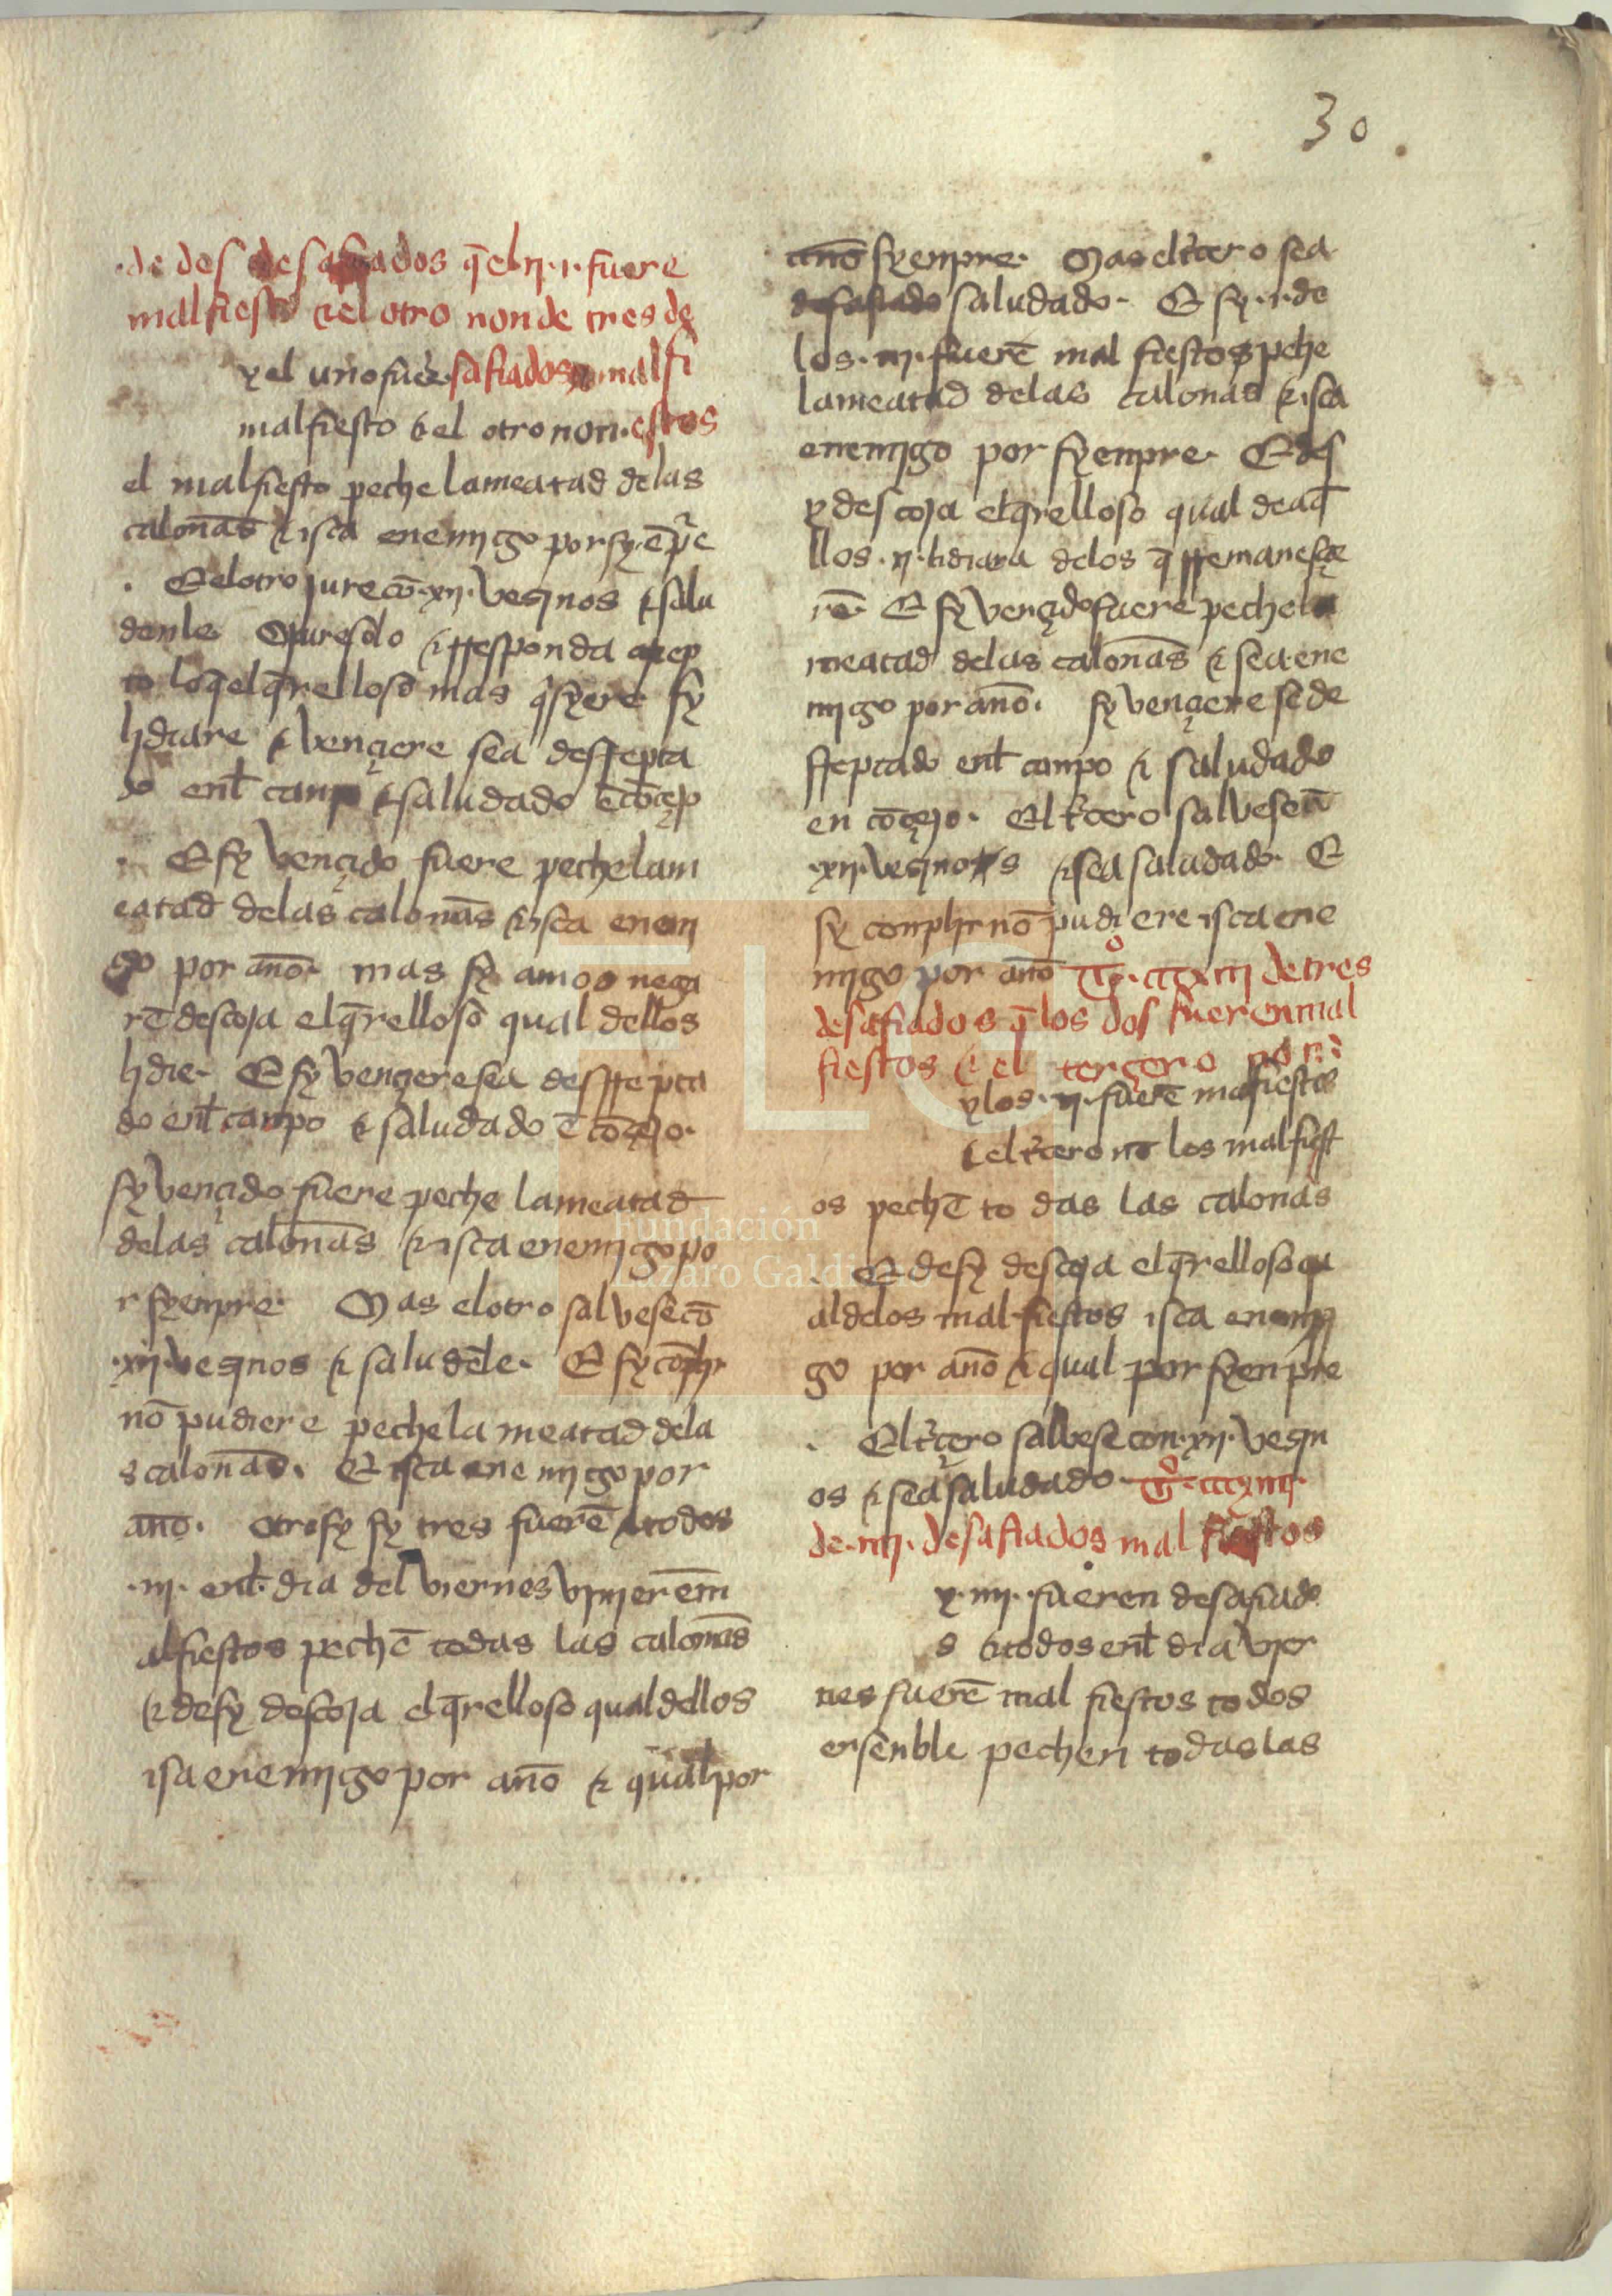 30
de dos desafiados q̄ el .ı. fuere
malfiesto ⁊ el otro non de tres de
y el uno fuere safiados malfi
malfiesto ⁊ el otro non. estos
el malfiesto peche la meatad delas
calonãs ⁊ isca enemigo por syẽpre
. E el otro jure cõ .xıı. vesinos ⁊ salu
denle O jure solo ⁊ rresponda a rrep
to lo q̄ el q̄relloso mas q̇syere sy
lidiare ⁊ vençiere sea desrrepta
do enł canpo ⁊ saludado ẽ cõçejo
. E sy vençido fuere peche la m
eatad delas calonãs ⁊ isca enemi
go por anõ. mas sy amos nega
rẽ descoja el q̄relloso qual dellos
lidie. E sy vençiere sea desrrepta
do enł canpo ⁊ saludado ẽ cõçejo.
sy vençido fuere peche la meatad
delas calonãs ⁊ isca enemigo po
r syenpre. Mas el otro salvese cõ
.xıı. vesinos ⁊ saludẽle. E sy cõplir
nõ pudiere peche la meatad dela
s calonãs. E isca enemigo por
anõ. otrosy sy tres fuerẽ ⁊ todos
.ııı. enł dia del viernes vinierẽ m
alfiestos pechẽ todas las calonãs
⁊ desy descoja el q̄relloso qual dellos
isca enemigo por anõ ⁊ qual por
anõ syenpre. Mas el t̃cero sea
desafiado saludado. E sy .ı. de
los .ııı. fuerẽ mal fiestos peche
la meatad delas calonãs ⁊ isca
enemigo por syenpre. E des
y descoja el q̄relloso qual de aq̄
llos .ıı. lidiara delos q̄ rremanesçie
rẽ. E sy vençido fuere peche la
meatad delas calonãs ⁊ sea ene
migo por anõ. sy vençiere se de
rreptado enł canpo ⁊ saludado
en cõçejo. El t̃cero salvese cõ
.xıı. vesinos ⁊ sea saludado. E
sy conplir nõ pudiere isca ene
migo por anõ Tº. cccxııı de tres
desafiados q̄ los dos fueren mal
fiestos ⁊ el terçero nõ
y los .ıı. fuerẽ malfiestos
⁊ el t̃cero nõ los malfiest
os pechẽ todas las calonas
. E desy descoja el q̄relloso qu
al delos malfiestos isca enemi
go por anõ ⁊ qual por syenpre
. El t̃çero salvese con .xıı. vesin
os ⁊ sea saludado. Tº. cccxıııı.
de .ıııı. desafiados mal fiestos
y .ıııı. fueren desafiado
s ⁊ todos enł dia vier
nes fuerẽ mal fiestos todos
ensenble pechen todas las
FLG
Fundación
Lázaro Galdiano